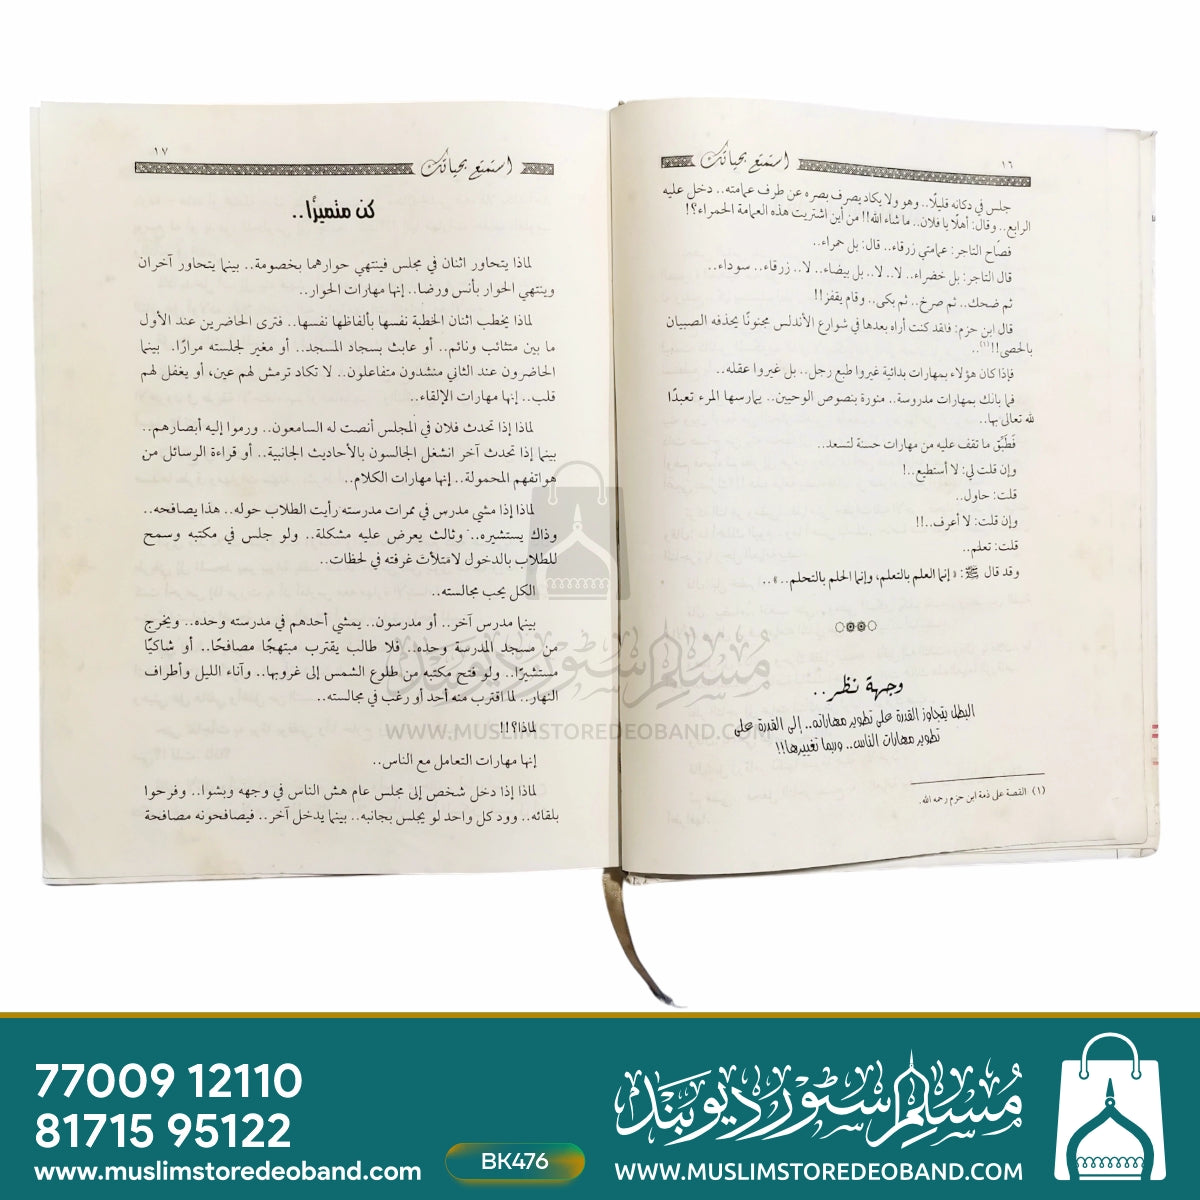 ١٦
استمتع بحياتك
جلس في دكانه قليلًا.. وهو ولا يكاد يصرف بصره عن طرف عمامته.. دخل عليه
الرابع.. وقال: أهلًا يا فلان.. ما شاء الله!! من أين اشتريت هذه العمامة الحمراء؟!
فصاح التاجر: عمامتي زرقاء.. قال: بل حمراء..
قال التاجر: بل خضراء.. لا.. لا.. بل بيضاء.. لا.. زرقاء.. سوداء..
ثم ضحك.. ثم صرخ.. ثم بكى.. وقام يقفز!!
قال ابن حزم: فلقد كنت أراه بعدها في شوارع الأندلس مجنونًا يحذفه الصبيان
بالحصى!!(١)..
فإذا كان هؤلاء بمهارات بدائية غيروا طبع رجل.. بل غيروا عقله..
فما بالك بمهارات مدروسة.. منورة بنصوص الوحيين.. يمارسها المرء تعبدًا
لله تعالى بها..
فَطَبِّق ما تقف عليه من مهارات حسنة لتسعد..
وإن قلت لي: لا أستطيع..!
قلت: حاول..
وإن قلت: لا أعرف..!!
قلت: تعلم..
وقد قال ﷺ: «إنما العلم بالتعلم، وإنما الحلم بالتحلم..»..
وجهة نظر..
البطل يتجاوز القدرة على تطوير مهاراته.. إلى القدرة على
تطوير مهارات الناس.. وربما تغييرها!!
(١) القصة على ذمة ابن حزم رحمه الله.
١٧
استمتع بحياتك
كن متميزًا..
لماذا يتحاور اثنان في مجلس فينتهي حوارهما بخصومة.. بينما يتحاور آخران
وينتهي الحوار بأنس ورضا.. إنها مهارات الحوار..
لماذا يخطب اثنان الخطبة نفسها بألفاظها نفسها.. فترى الحاضرين عند الأول
ما بين متثائب ونائم.. أو عابث بسجاد المسجد.. أو مغير لجلسته مرارًا. بينما
الحاضرون عند الثاني منشدون متفاعلون.. لا تكاد ترمش لهم عين، أو يغفل لهم
قلب.. إنها مهارات الإلقاء..
لماذا إذا تحدث فلان في المجلس أنصت له السامعون.. ورموا إليه أبصارهم..
بينما إذا تحدث آخر انشغل الجالسون بالأحاديث الجانبية.. أو قراءة الرسائل من
هواتفهم المحمولة.. إنها مهارات الكلام..
لماذا إذا مشي مدرس في ممرات مدرسته رأيت الطلاب حوله.. هذا يصافحه..
وذاك يستشيره.. وثالث يعرض عليه مشكلة.. ولو جلس في مكتبه وسمح
للطلاب بالدخول لامتلأت غرفته في لحظات..
الكل يحب مجالسته..
بينما مدرس آخر.. أو مدرسون.. يمشي أحدهم في مدرسته وحده.. ويخرج
من مسجد المدرسة وحده.. فلا طالب يقترب مبتهجًا مصافحًا.. أو شاكيًا
مستشيرًا.. ولو فتح مكتبه من طلوع الشمس إلى غروبها.. وآناء الليل وأطراف
النهار.. لما اقترب منه أحد أو رغب في مجالسته..
لماذا؟!!
إنها مهارات التعامل مع الناس..
لماذا إذا دخل شخص إلى مجلس عام هش الناس في وجهه وبشوا.. وفرحوا
بلقائه.. وود كل واحد لو يجلس بجانبه.. بينما يدخل آخر.. فيصافحونه مصافحة
مسلم سٹور دیوبند
WWW.MUSLIMSTOREDEOBAND.COM
77009 12110
81715 95122
www.muslimstoredeoband.com
BK476
مسلم سٹور دیوبند
WWW.MUSLIMSTOREDEOBAND.COM